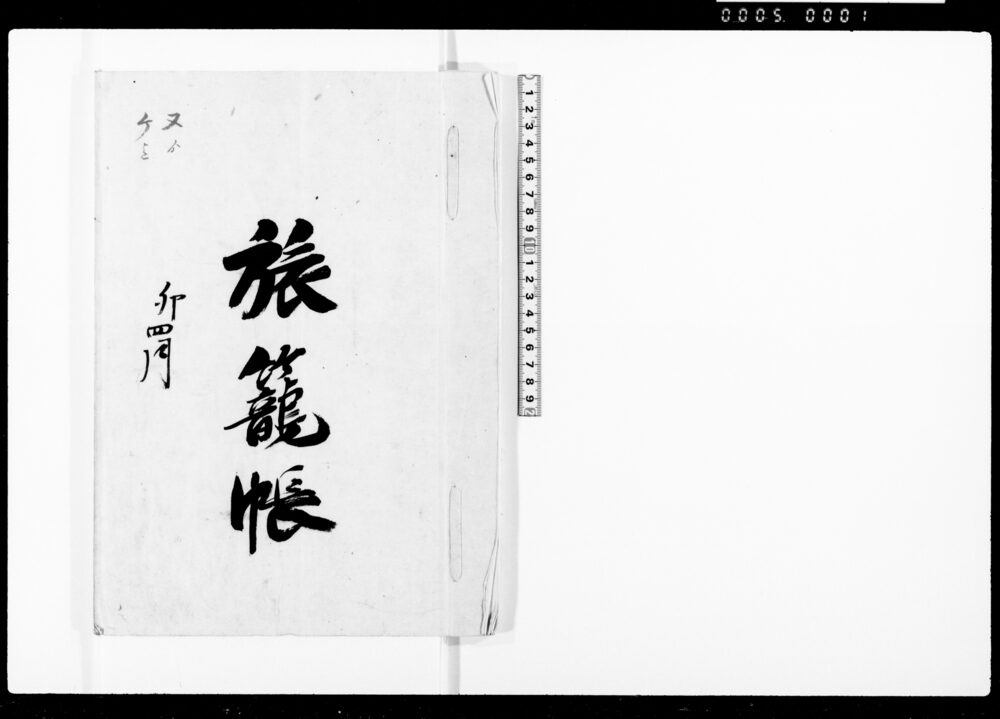 0005 0001
旅籠帳
卯四月
1 2 3 4 5 6 7 8 9 10 1 2 3 4 5 6 7 8 9 2